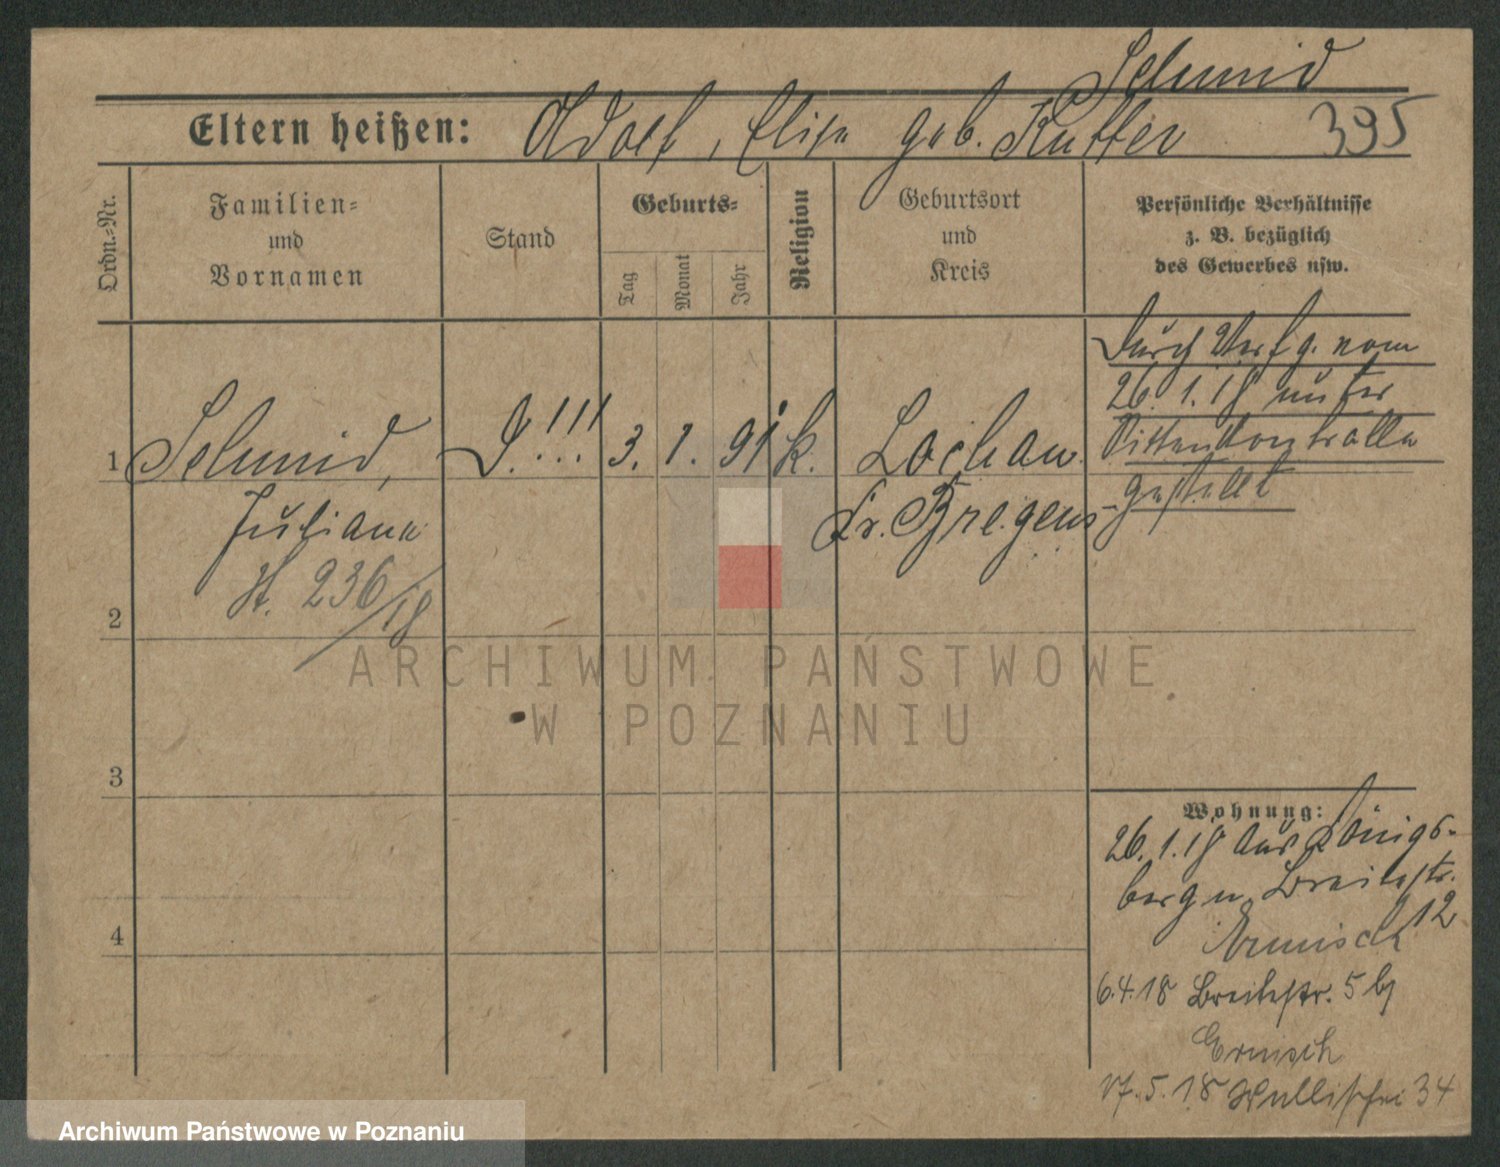 Schmid
Eltern heißen: Adolf, Elisa geb. Kutter 395
Ordn.-Nr.
Familien-
und
Vornamen
Stand
Geburts-
Tag
Monat
Jahr
Religion
Geburtsort
und
Kreis
Persönliche Verhältnisse
z. B. bezüglich
des Gewerbes usw.
Durch Verfg. vom
26.1.18 unter
Sittenkontrolle
gestellt
1 Schmid, !!! 3. 1. 91 k. Lochau
Juliana Kr. Bregenz
H. 236/18
2
3
4
Wohnung:
26.1.18 aus Königs-
berg n. Breitestr.
12
6.4.18 Breitestr. 5 bei
Ermisch
17.5.18 34
ARCHIWUM PAŃSTWOWE
W POZNANIU
Archiwum Państwowe w Poznaniu